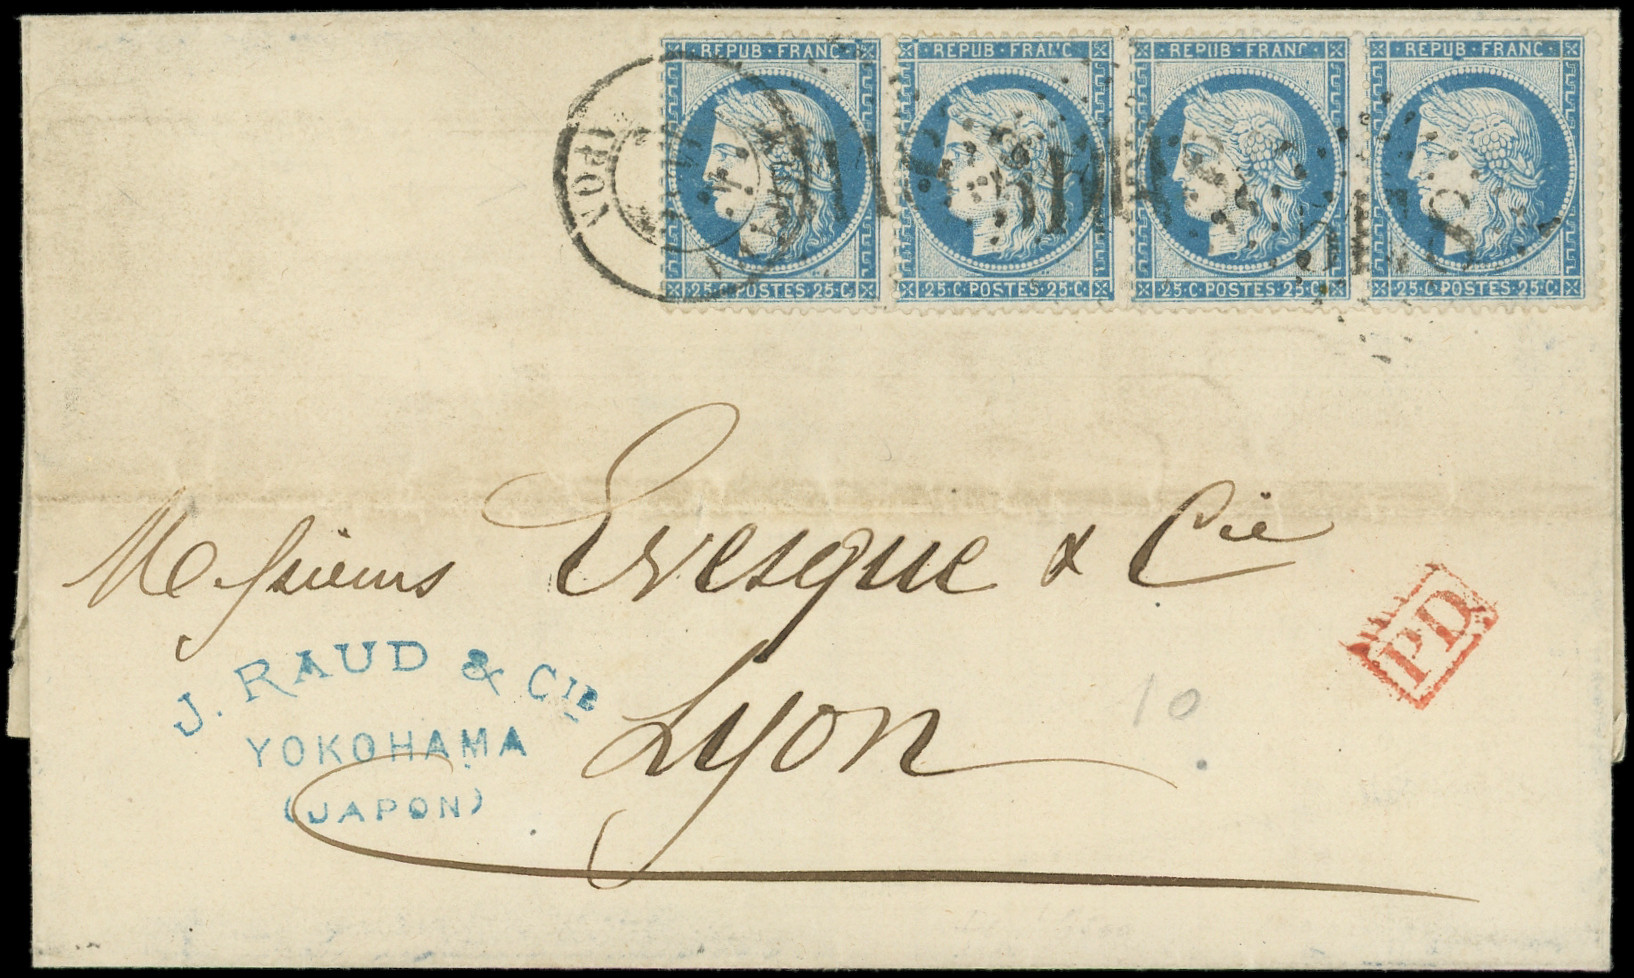 REPUB·FRANC· REPUB·FRANC REPUB·FRANC REPUB·FRANC·
25·C·POSTES·25·C· 25·C·POSTES·25·C· 25·C·POSTES·25·C· 25·C·POSTES·25·C·
5118
Messieurs Evesque & Cie
PD
J. RAUD & CIE
YOKOHAMA
(JAPON)
Lyon
10